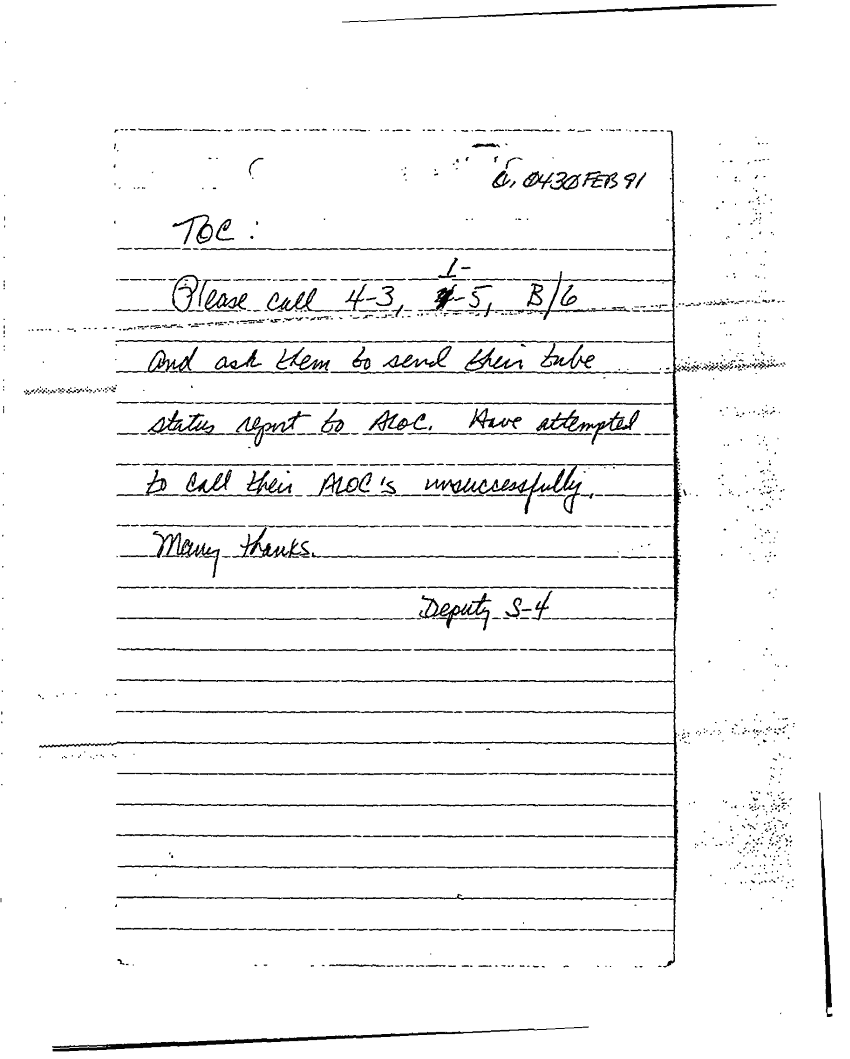 0430 FEB 91
TOC:
1-
Please call 4-3, -5, B/6
and ask them to send their tube
status report to ALOC. Have attempted
to call their ALOC's unsuccessfully.
Many thanks.
Deputy S-4